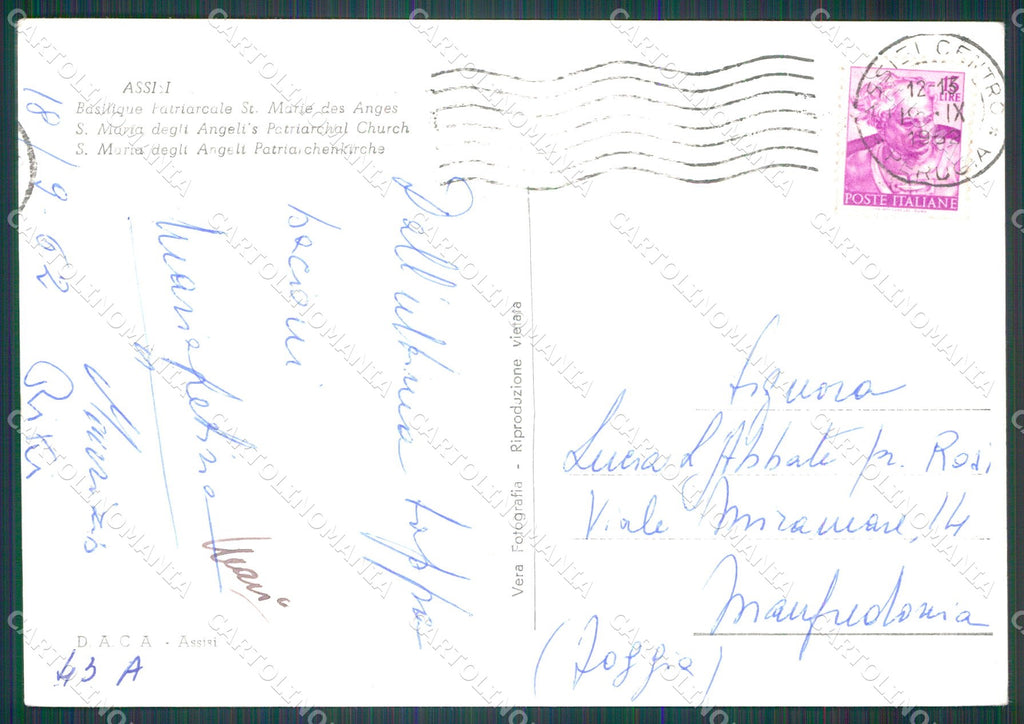 ASSISI
Basilique Patriarcale St. Marie des Anges
S. Maria degli Angeli's Patriarchal Church
S. Maria degli Angeli Patriarchenkirche
18/9.62
Dell'ultima tappa
bacioni
Mariapetrina
Maurizio
Maria
D. A. C. A - Assisi
43 A
Vera Fotografia - Riproduzione vietata
ASSISI CENTRO
PERUGIA
12-13
IX
15
LIRE
POSTE ITALIANE
Signora
Lucia L'Abbate pr. Rosi
Viale Miramare, 14
Manfredonia
(Foggia)
CARTOLINOMANIA